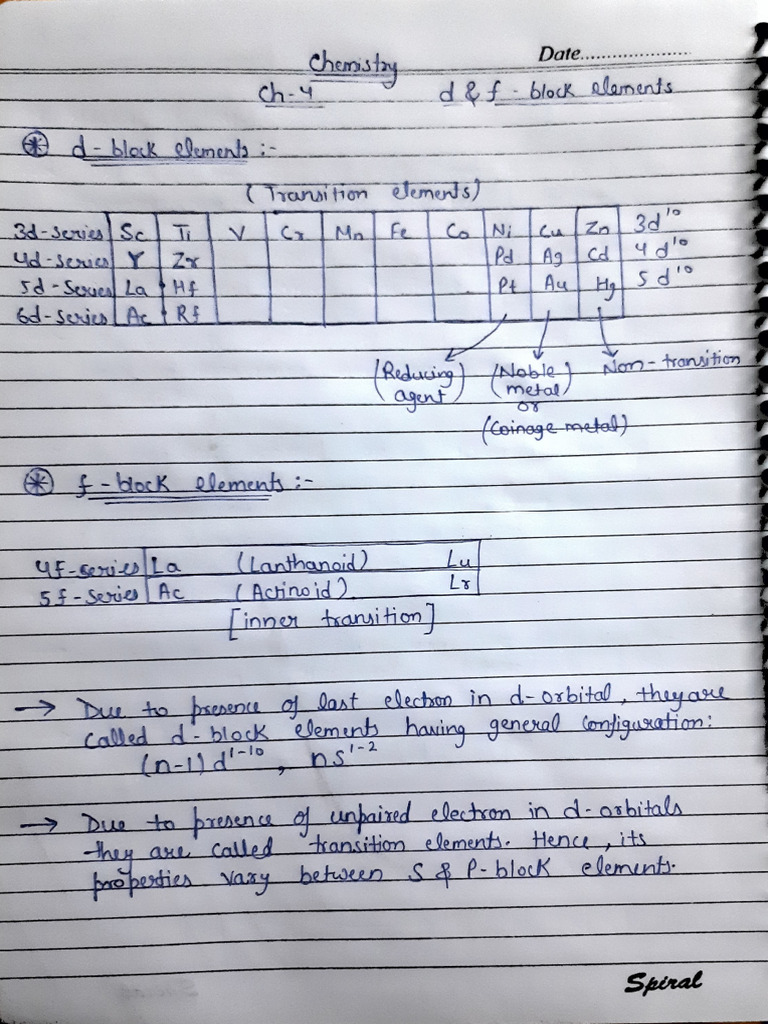 Date....................
Chemistry
Ch-4 d & f - block elements
⊛ d-block elements :-
(Transition elements)
3d-series Sc Ti V Cr Mn Fe Co Ni Cu Zn 3d¹⁰
4d-series Y Zr Pd Ag Cd 4d¹⁰
5d-Series La Hf Pt Au Hg 5d¹⁰
6d-series Ac Rf
(Reducing agent) (Noble metal) Non-transition
or
(Coinage metal)
⊛ f-block elements :-
4f-series La (Lanthanoid) Lu
5f-Series Ac (Actinoid) Lr
[inner transition]
→ Due to presence of last electron in d-orbital, they are
called d-block elements having general configuration:
(n-1)d¹⁻¹⁰, ns¹⁻²
→ Due to presence of unpaired electron in d-orbitals
they are called transition elements. Hence, its
properties vary between S & P-block elements.
Spiral